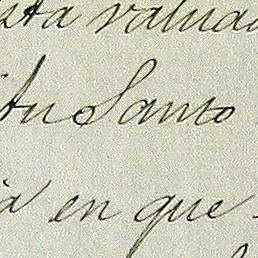 sta valuad
itu Santo
ia en que